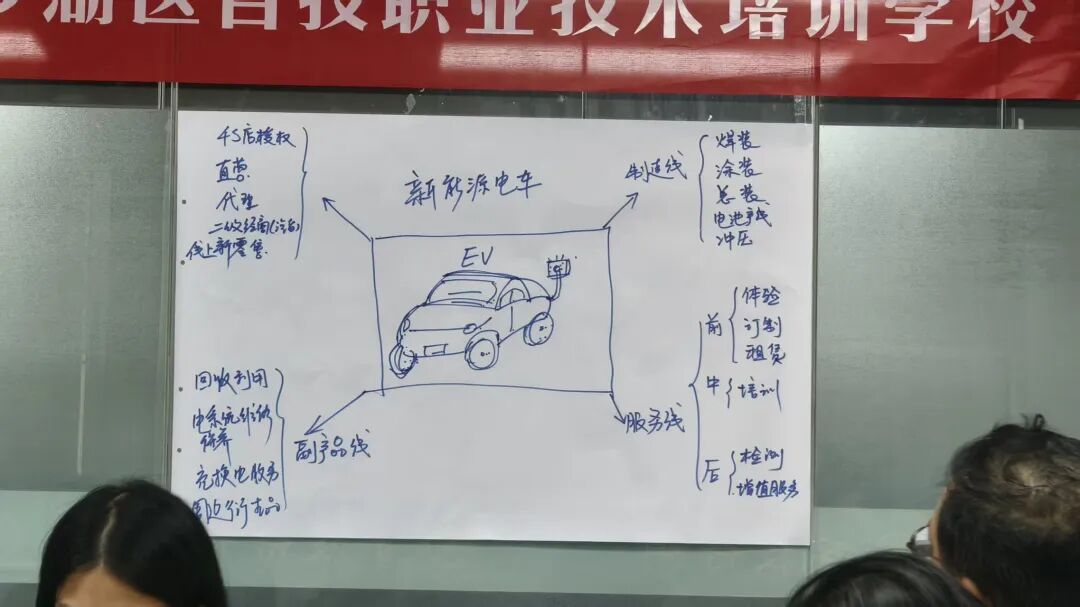 湖区百技职业技术培训学校
新能源电车
EV
4S店授权
直营
代理
线上新零售
制造线
焊装
涂装
总装
电池产线
冲压
服务线
前
体验
订制
租赁
中
培训
后
检测
增值服务
副产品线
回收利用
电系统维修
保养
充换电服务